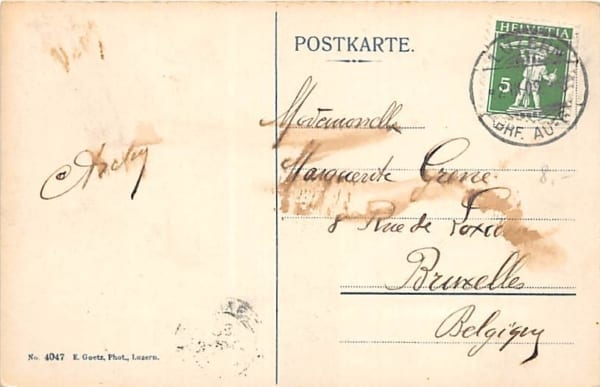 POSTKARTE.
HELVETIA
5
BRF. AU
8.-
Mademoiselle
Marguerite
8 Rue de
Bruxelles
Belgique
No. 4047 E. Goetz, Phot., Luzern.